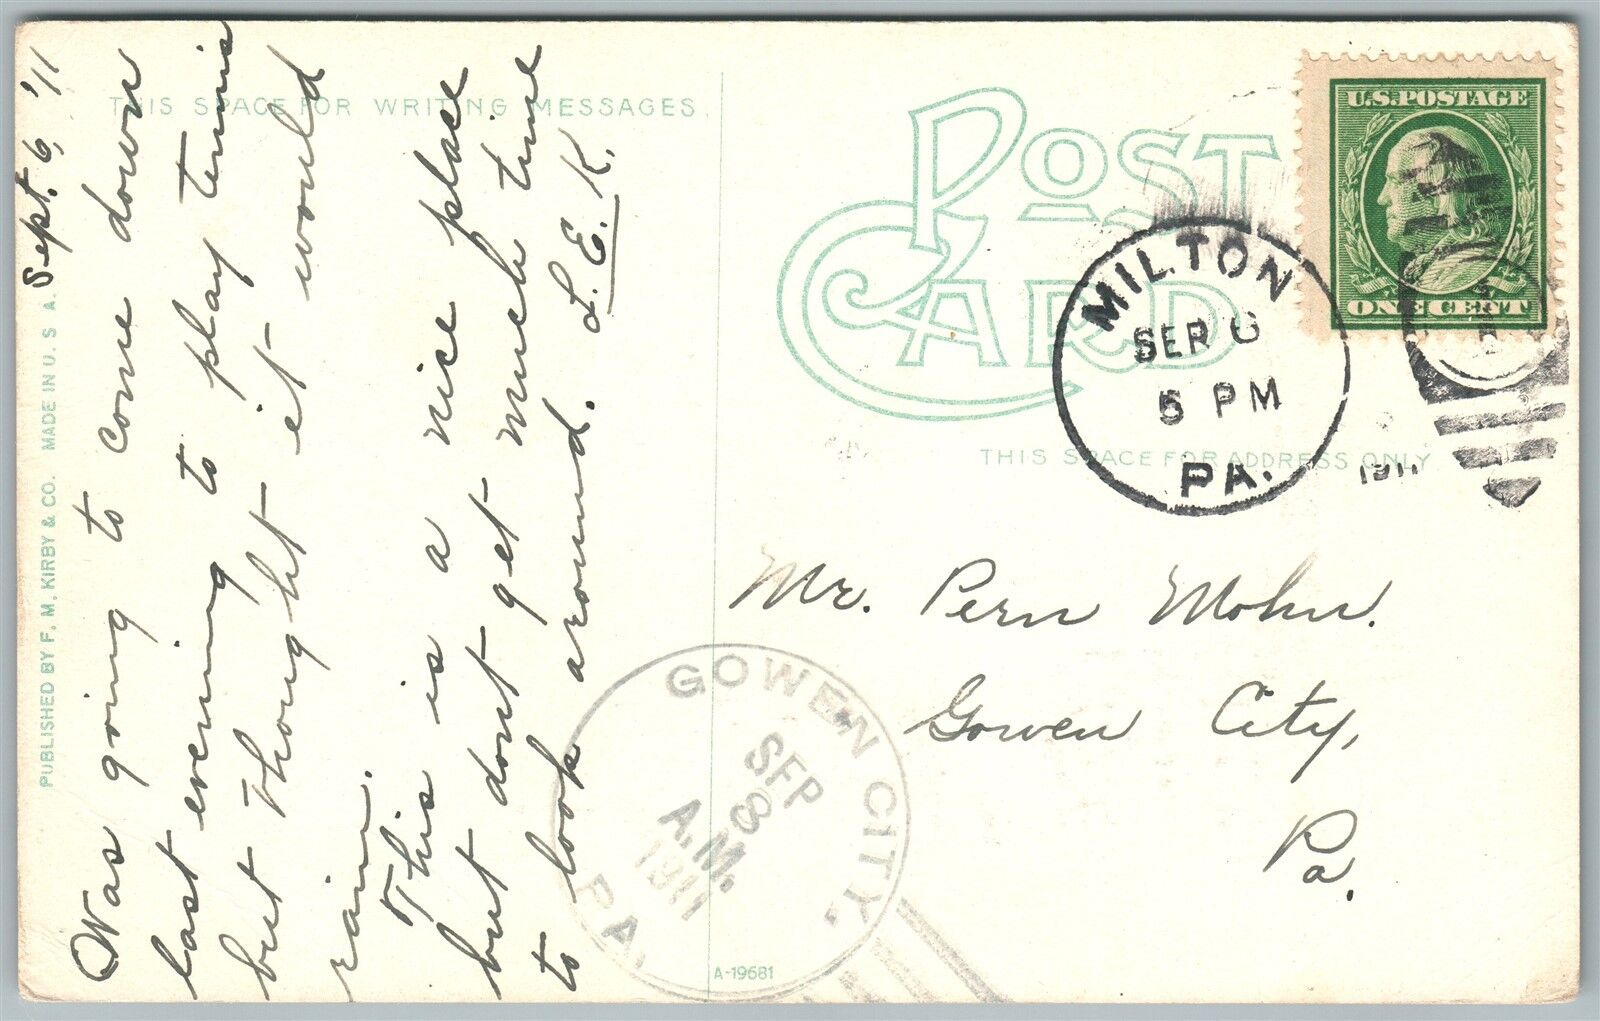 THIS SPACE FOR WRITING MESSAGES
Sept. 6, '11
Was going to come down
last evening to play tennis
but thought it would
rain.
This is a nice place
but dont get much time
to look around. L. E. K.
PUBLISHED BY F. M. KIRBY & CO. MADE IN U. S. A.
POST CARD
THIS SPACE FOR ADDRESS ONLY
U.S. POSTAGE
ONE CENT
MILTON
SEP 6
5 PM
1911
PA.
Mr. Pern Mohn.
Gowen City,
Pa.
GOWEN CITY.
SEP
8
A.M.
1911
PA.
A-19681